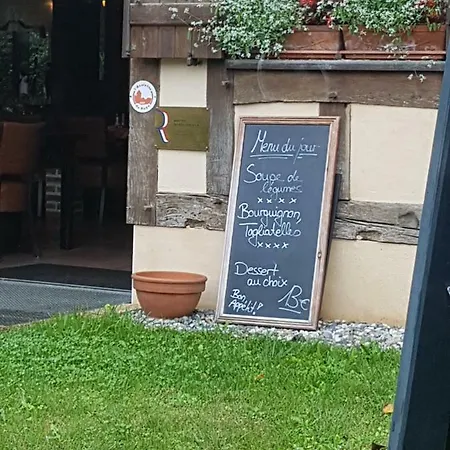 Menu du jour
Soupe de
légumes
xxxx
Bourguignon,
Tagliatelles
xxxx
Dessert
au choix
Bon
Appétit!
13€